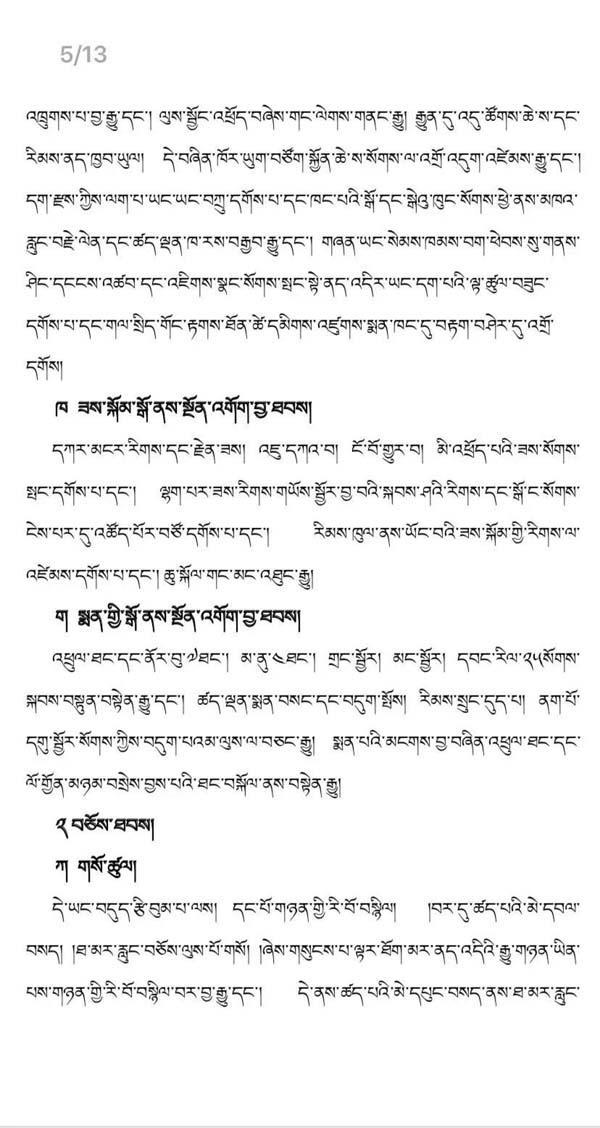 5/13
འཁྲུགས་པ་བྱ་རྒྱུ་དང་། ལུས་སྦྱོང་འཕྲོད་བཞེས་གང་ལེགས་གནང་རྒྱུ། རྒྱུན་དུ་འདུ་ཚོགས་ཆེ་ས་དང་
རིམས་ནད་ཁྱབ་ཡུལ། དེ་བཞིན་ཁོར་ཡུག་བཙོག་སྐྱོན་ཆེ་ས་སོགས་ལ་འགྲོ་འདུག་འཛེམས་རྒྱུ་དང་།
དག་རྫས་ཀྱིས་ལག་པ་ཡང་ཡང་བཀྲུ་དགོས་པ་དང་ཁང་པའི་སྒོ་དང་སྒེའུ་ཁུང་སོགས་ཕྱེ་ནས་མཁའ་
རླུང་བརྗེ་ལེན་དང་ཚད་ལྡན་ཁ་རས་བརྒྱབ་རྒྱུ་དང་། གཞན་ཡང་སེམས་ཁམས་བག་ཕེབས་སུ་གནས་
ཤིང་དངངས་འཚབ་དང་འཇིགས་སྣང་སོགས་སྤང་སྟེ་ནད་འདིར་ཡང་དག་པའི་ལྟ་ཚུལ་བཟུང་
དགོས་པ་དང་གལ་སྲིད་གོང་རྟགས་ཐོན་ཚེ་དམིགས་འཛུགས་སྨན་ཁང་དུ་བརྟག་བཤེར་དུ་འགྲོ་
དགོས།
ཁ ཟས་སྐོམ་སྒོ་ནས་སྔོན་འགོག་བྱ་ཐབས།
དཀར་མངར་རིགས་དང་རྗེན་ཟས། འཇུ་དཀའ་བ། ངོ་བོ་གྱུར་བ། མི་འཕྲོད་པའི་ཟས་སོགས་
སྤང་དགོས་པ་དང་། ལྷག་པར་ཟས་རིགས་གཡོས་སྦྱོར་བྱ་བའི་སྐབས་ཤའི་རིགས་དང་སྒོ་ང་སོགས་
ངེས་པར་དུ་འཚོད་པོར་བཙོ་དགོས་པ་དང་། རིམས་ཁུལ་ནས་ཡོང་བའི་ཟས་སྐོམ་གྱི་རིགས་ལ་
འཛེམས་དགོས་པ་དང་། ཆུ་སྐོལ་གང་མང་འཐུང་རྒྱུ།
ག སྨན་གྱི་སྒོ་ནས་སྔོན་འགོག་བྱ་ཐབས།
འཕྲུལ་ཐང་དང་ནོར་བུ་༧ཐང་། མ་ནུ་༤ཐང་། གྲང་སྦྱོར། མང་སྦྱོར། དབང་རིལ་༢༥སོགས་
སྐབས་བསྟུན་བསྟེན་རྒྱུ་དང་། ཚད་ལྡན་སྨན་བསང་དང་བདུག་སྤོས། རིམས་སྲུང་དུད་པ། ནག་པོ་
དགུ་སྦྱོར་སོགས་ཀྱིས་བདུག་པའམ་ལུས་ལ་བཅང་རྒྱུ། སྨན་པའི་མངགས་བྱ་བཞིན་འཕྲུལ་ཐང་དང་
ལོ་གྱོན་མཉམ་བསྲེས་བྱས་པའི་ཐང་བསྐོལ་ནས་བསྟེན་རྒྱུ།
༢ བཅོས་ཐབས།
ཀ གསོ་ཚུལ།
དེ་ཡང་བདུད་རྩི་བུམ་པ་ལས། དང་པོ་གཉན་གྱི་རི་བོ་བསྙིལ། །བར་དུ་ཚད་པའི་མེ་དབལ་
བསད། །ཐ་མར་རླུང་བཅོས་ལུས་པོ་གསོ། །ཞེས་གསུངས་པ་ལྟར་ཐོག་མར་ནད་འདིའི་རྒྱུ་གཉན་ཡིན་
པས་གཉན་གྱི་རི་བོ་བསྙིལ་བར་བྱ་རྒྱུ་དང་། དེ་ནས་ཚད་པའི་མེ་དཔུང་བསད་ནས་ཐ་མར་རླུང་